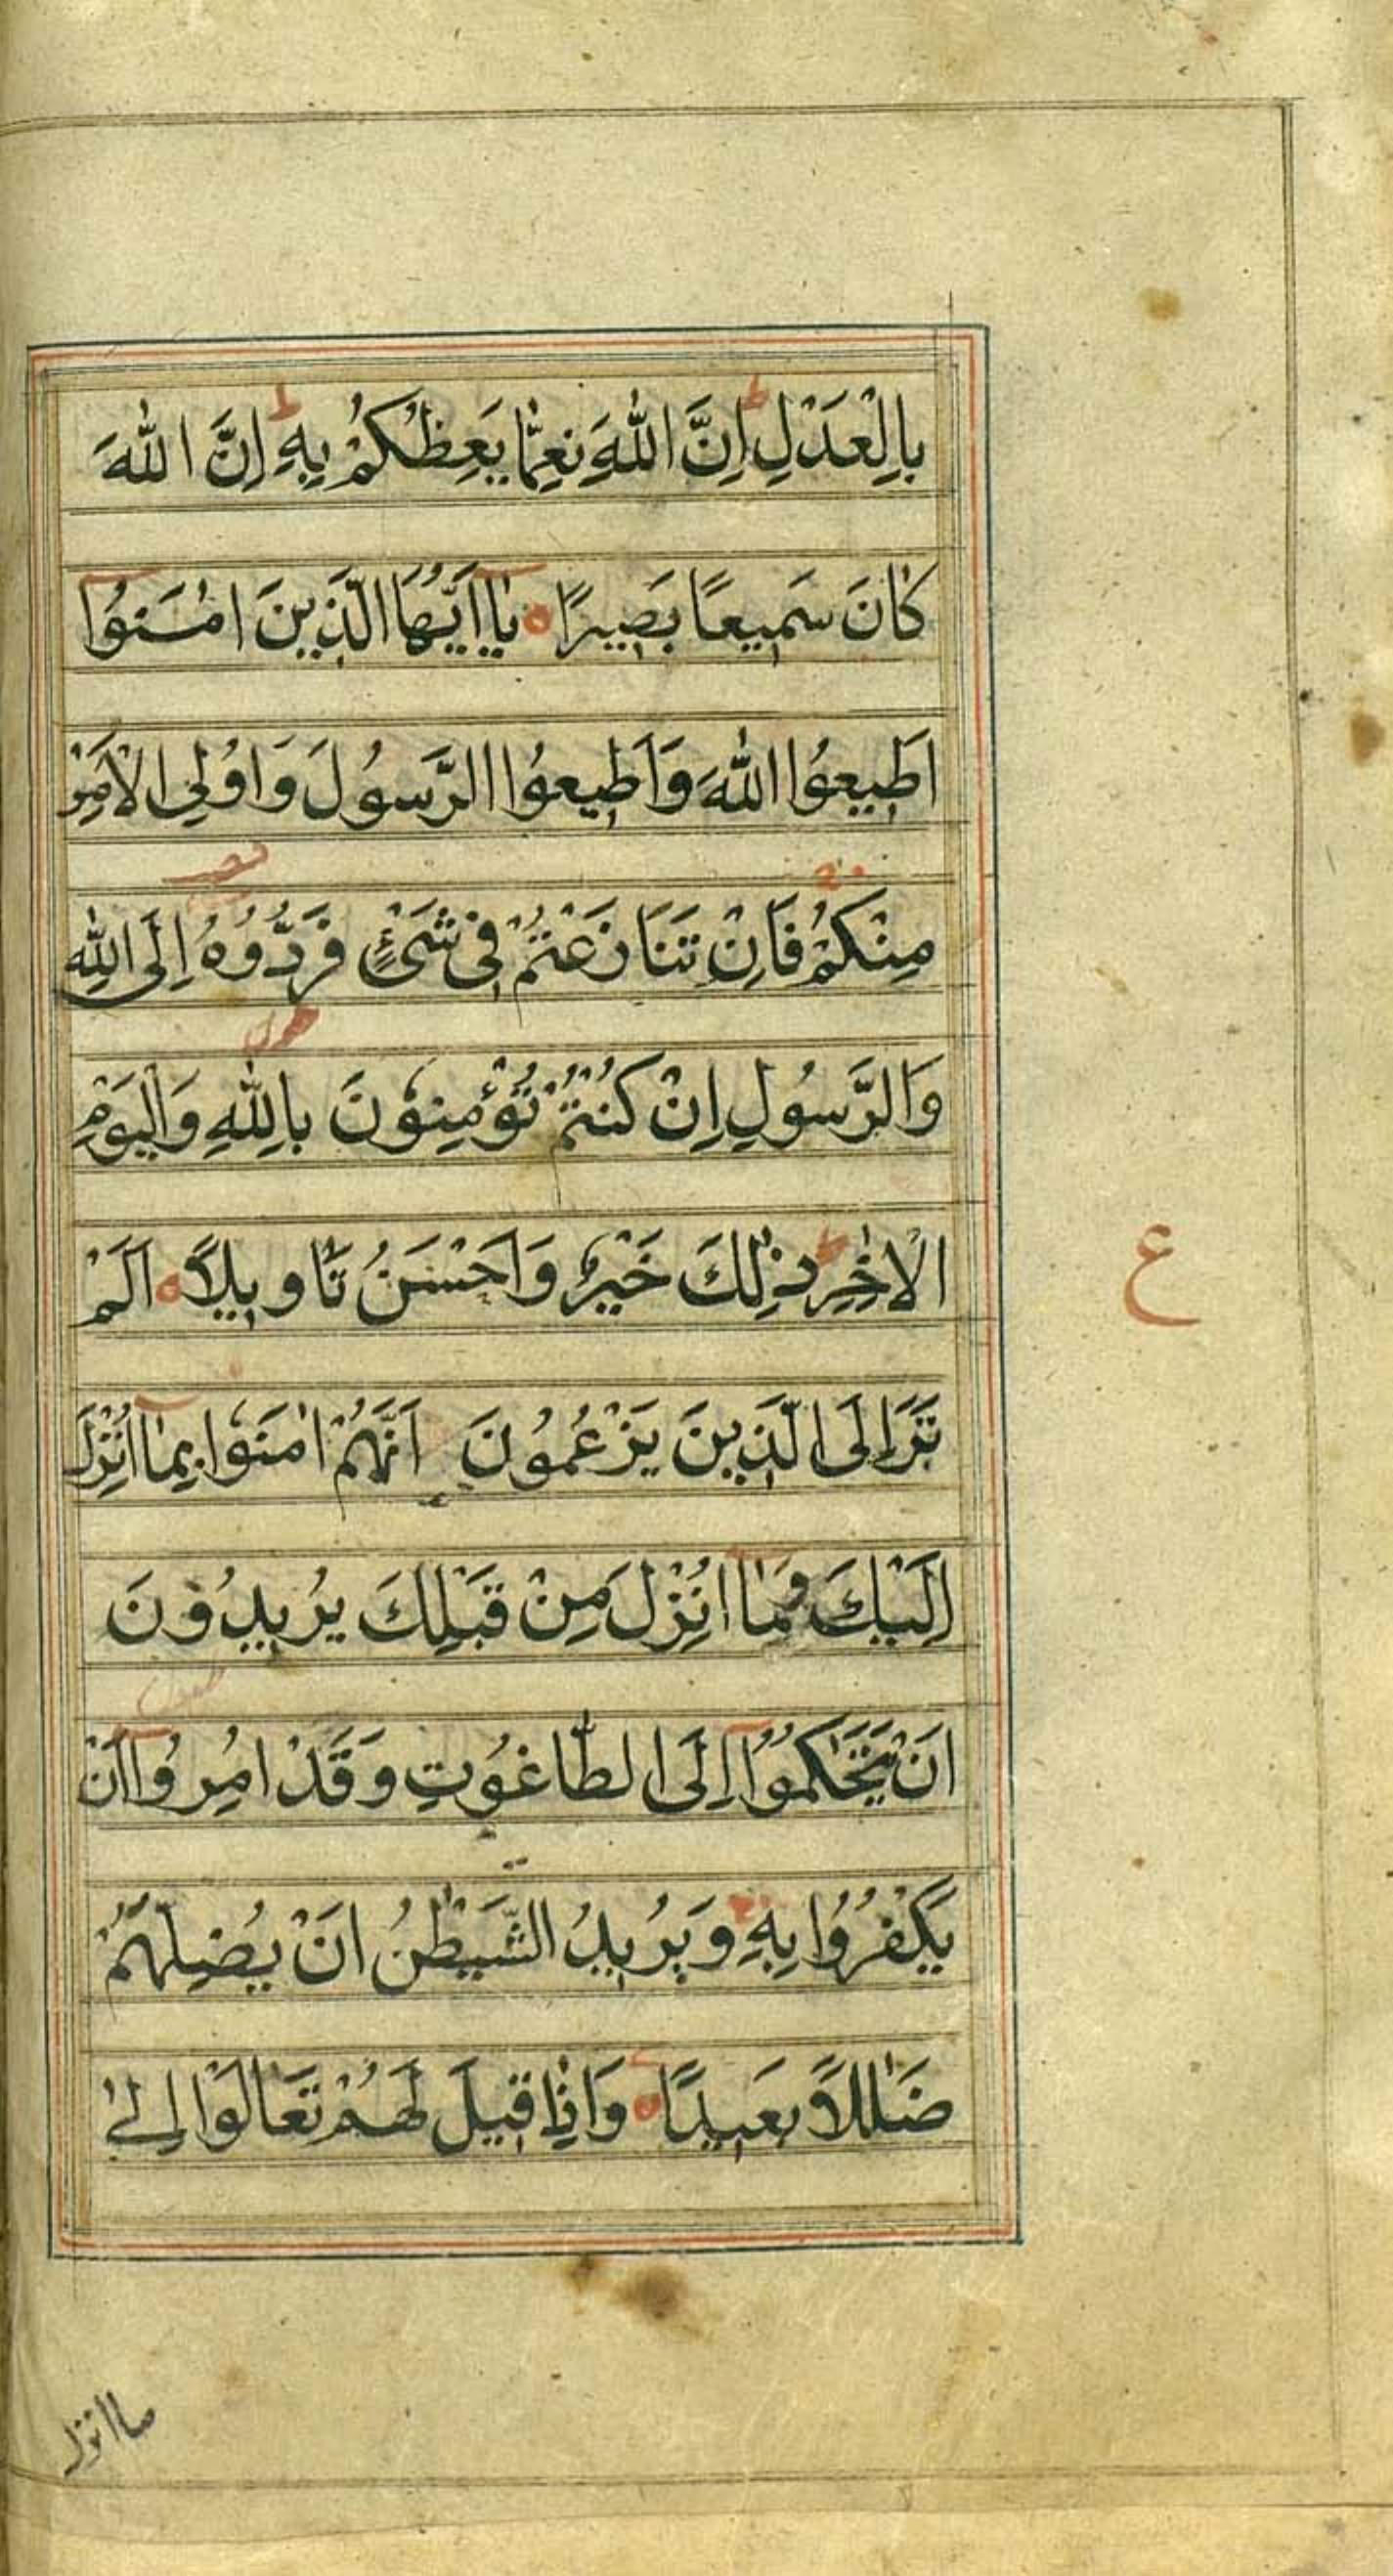 بِالْعَدْلِ ط اِنَّ اللّٰهَ نِعِمَّا يَعِظُكُمْ بِهٖ ط اِنَّ اللّٰهَ
كَانَ سَمِيعًا بَصِيرًا ه يٰٓاَيُّهَا الَّذِينَ اٰمَنُوٓا
اَطِيعُوا اللّٰهَ وَاَطِيعُوا الرَّسُولَ وَاُولِى الْاَمْرِ
مِنْكُمْ فَاِنْ تَنَازَعْتُمْ فِى شَىْءٍ فَرُدُّوهُ اِلَى اللّٰهِ
وَالرَّسُولِ اِنْ كُنْتُمْ تُؤْمِنُونَ بِاللّٰهِ وَالْيَوْمِ
الْاٰخِرِ ط ذٰلِكَ خَيْرٌ وَاَحْسَنُ تَاْوِيلًا ه اَلَمْ
ع
تَرَ اِلَى الَّذِينَ يَزْعُمُونَ اَنَّهُمْ اٰمَنُوا بِمَآ اُنْزِلَ
اِلَيْكَ وَمَآ اُنْزِلَ مِنْ قَبْلِكَ يُرِيدُونَ
اَنْ يَتَحَاكَمُوٓا اِلَى الطَّاغُوتِ وَقَدْ اُمِرُوٓا اَنْ
يَكْفُرُوا بِهٖ وَيُرِيدُ الشَّيْطٰنُ اَنْ يُضِلَّهُمْ
ضَلٰلًا بَعِيدًا ه وَاِذَا قِيلَ لَهُمْ تَعَالَوْا اِلٰى
ما انزل